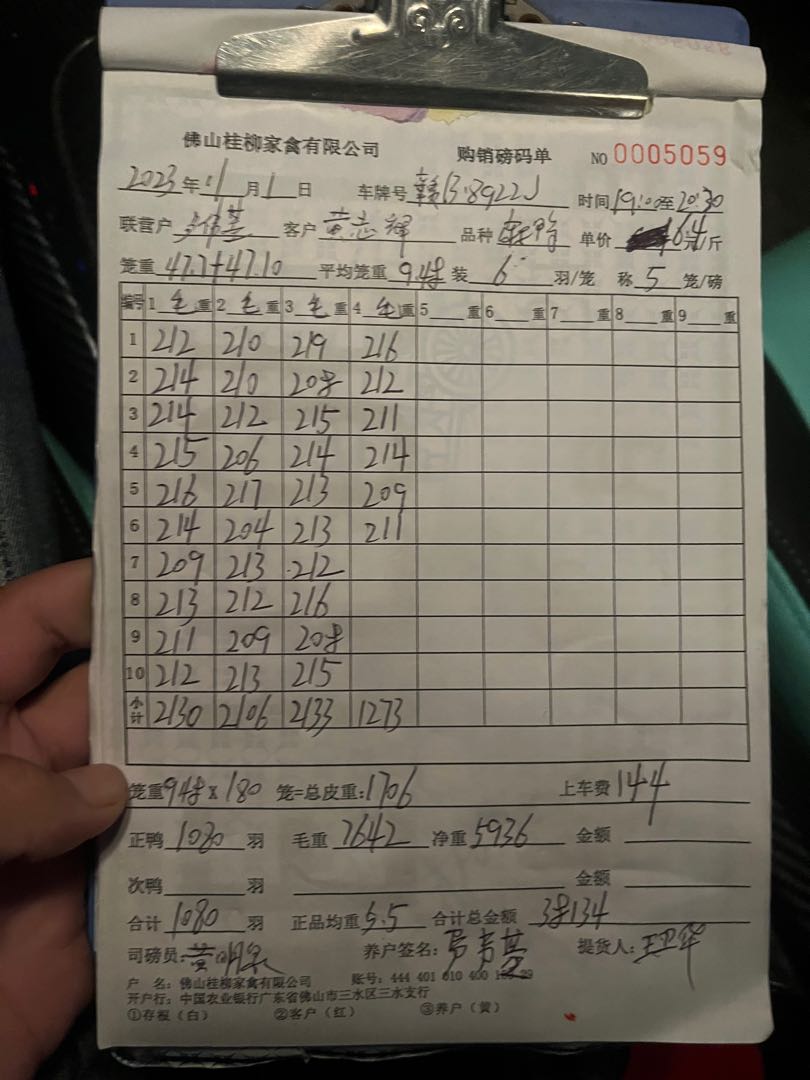 佛山桂柳家禽有限公司 购销磅码单 NO 0005059
2023年11月1日 车牌号 赣B·8922J 时间19:00至20:30
联营户 客户 黄志辉 品种 单价 6.4/斤
笼重 47.7+47.10 平均笼重 9.48 装 6 羽/笼 称 5 笼/磅
编号 1毛重 2毛重 3毛重 4毛重 5 重 6 重 7 重 8 重 9 重
1 212 210 219 216
2 214 210 208 212
3 214 212 215 211
4 215 206 214 214
5 216 217 213 209
6 214 204 213 211
7 209 213 212
8 213 212 216
9 211 209 208
10 212 213 215
小计 2130 2106 2133 1273
笼重 948 x 180 笼=总皮重:1706 上车费 144
正鸭 1080 羽 毛重 7642 净重 5936 金额
次鸭 羽 金额
合计 1080 羽 正品均重 5.5 合计总金额 38134
司磅员: 养户签名: 提货人: 王卫华
户 名: 佛山桂柳家禽有限公司 账号: 444 401 010 400
开户行: 中国农业银行广东省佛山市三水区三水支行
①存根(白) ②客户(红) ③养户(黄)